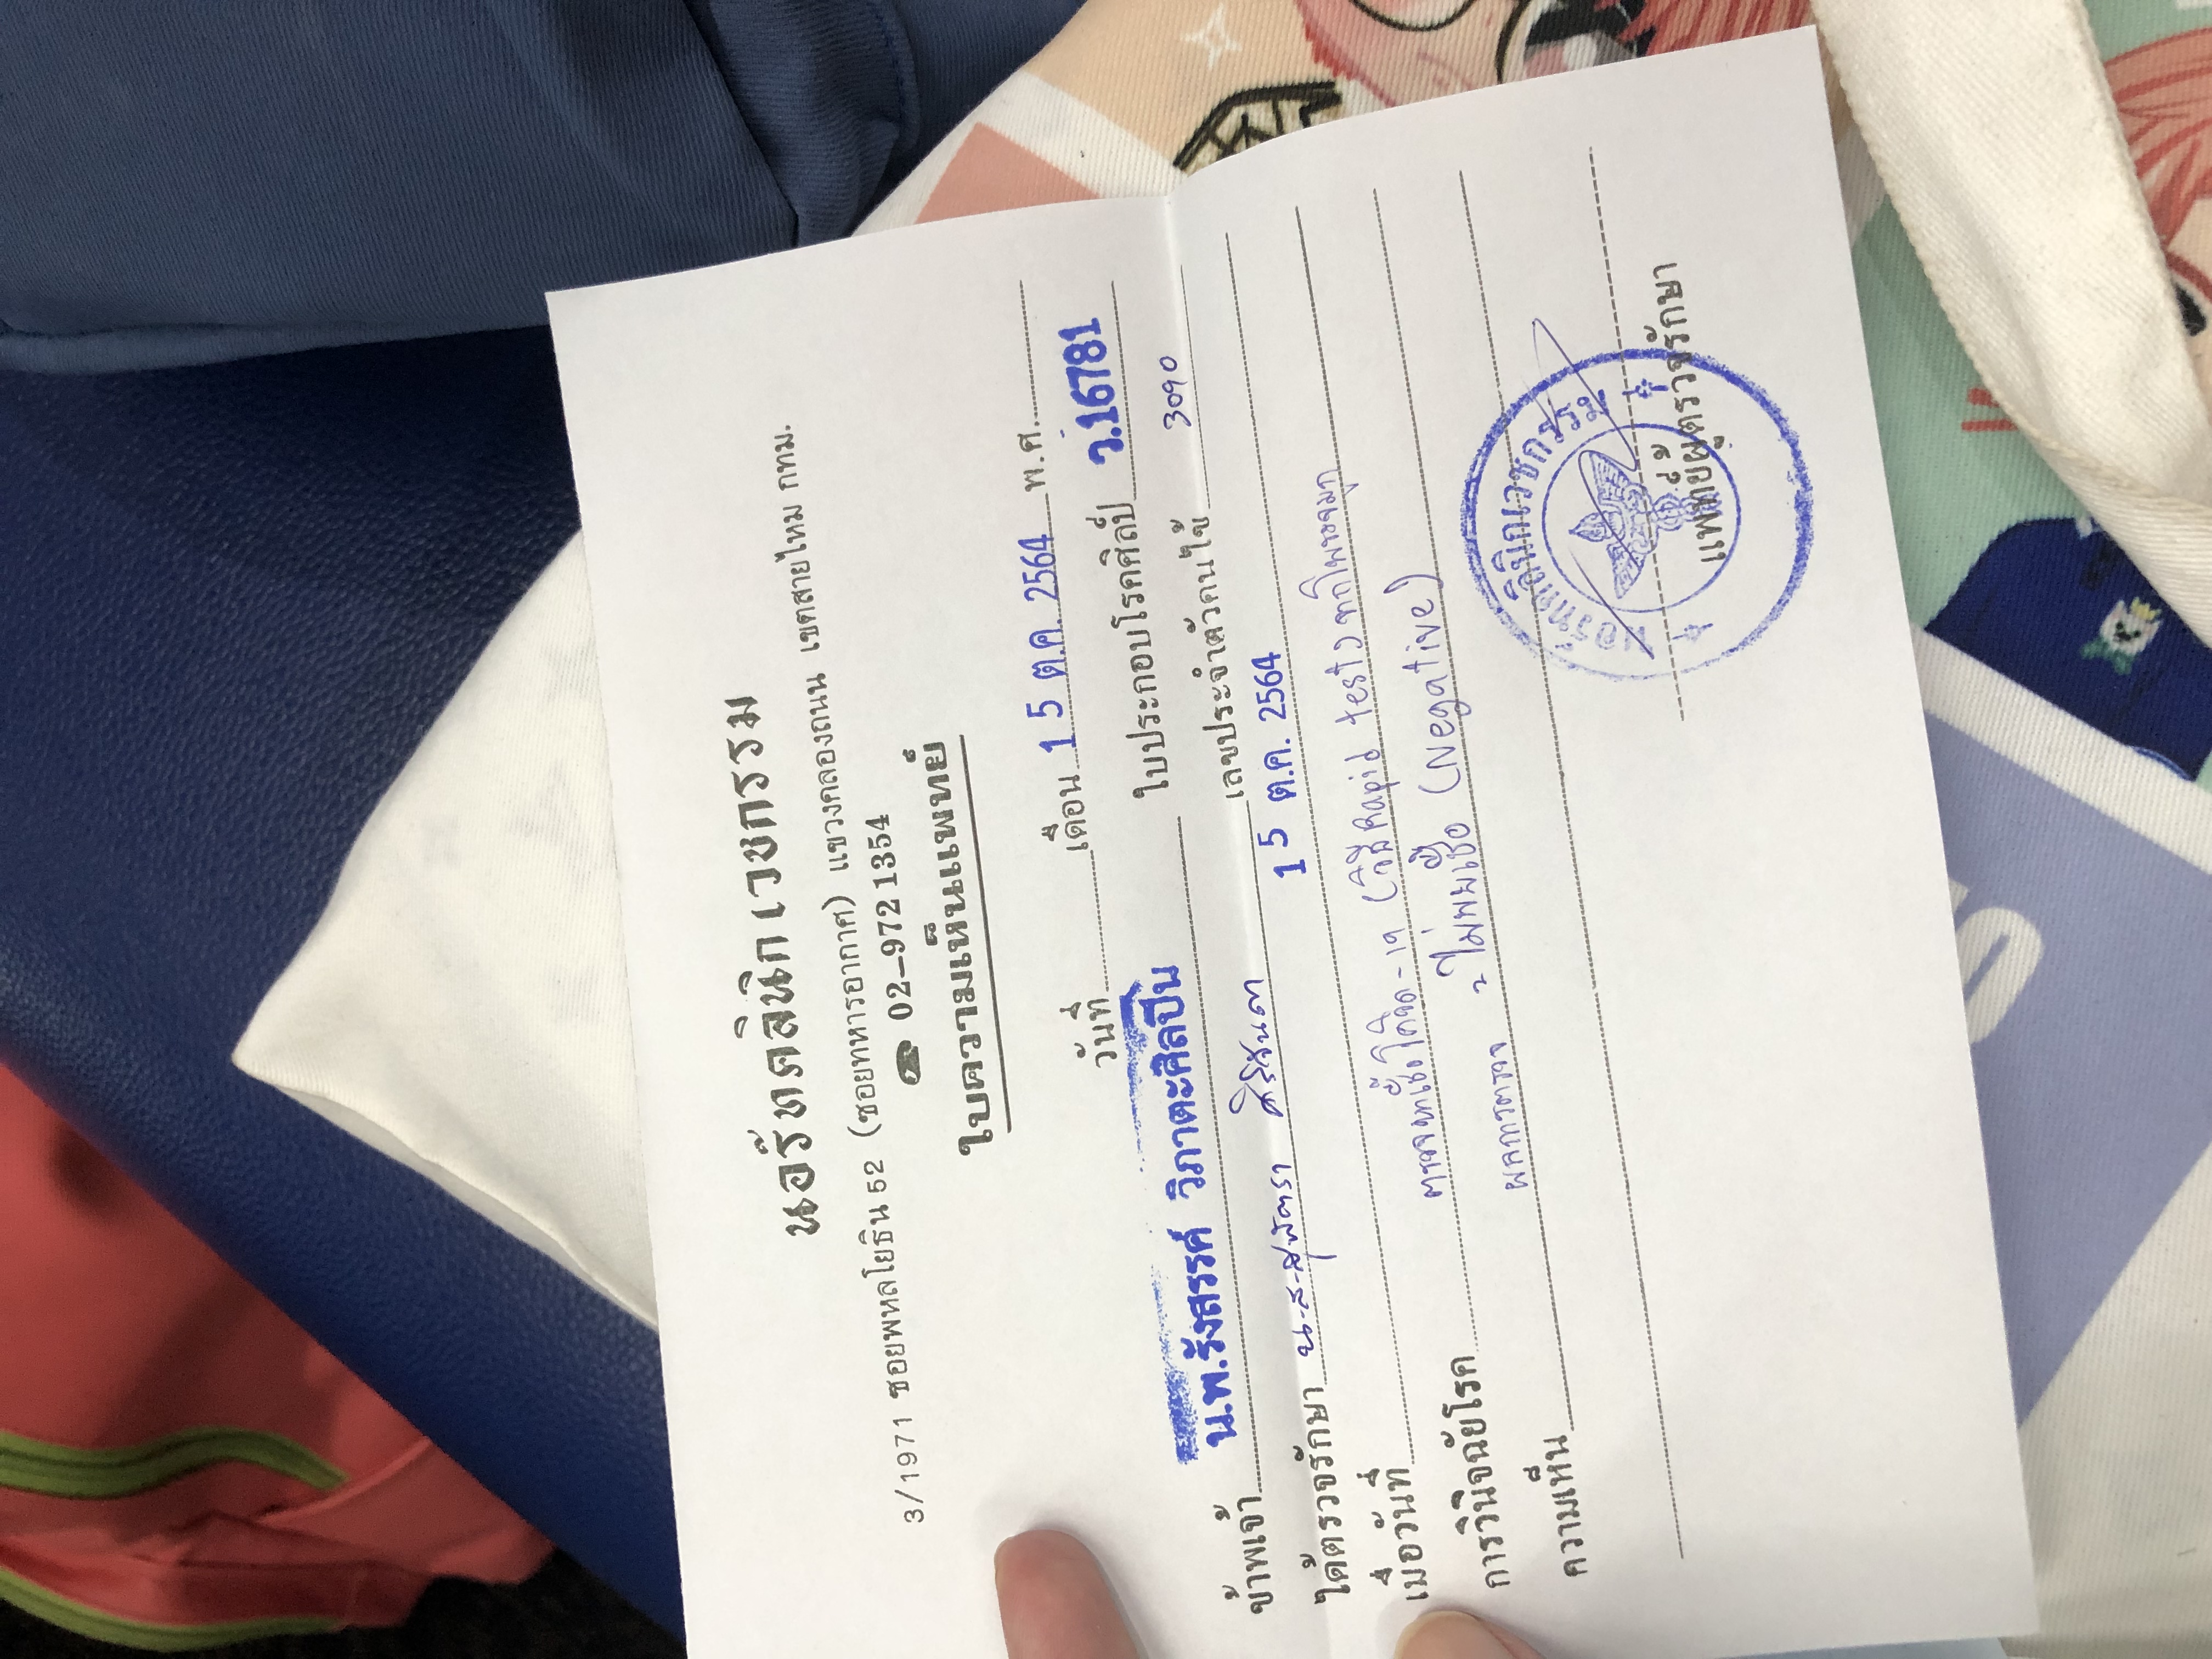 นอร์ทคลินิกเวชกรรม
3/1971 ซอยพหลโยธิน 52 (ซอยทหารอากาศ) แขวงคลองถนน เขตสายไหม กทม.
☎ 02-972 1354
ใบความเห็นแพทย์
วันที่ เดือน 15 ต.ค. 2564 พ.ศ.
ข้าพเจ้า น.พ.รังสรรค์ วิภาตะศิลปิน ใบประกอบโรคศิลป์ ว.16781
ได้ตรวจรักษา น.ส.สุพัตรา ศิริจันดา เลขประจำตัวคนไข้ 3090
เมื่อวันที่ 15 ต.ค. 2564
การวินิจฉัยโรค ตรวจหาเชื้อโควิด-19 (วิธี Rapid test) ทางโพรงจมูก
ความเห็น ผลการตรวจ = ไม่พบเชื้อ (Negative)
นอร์ทคลินิกเวชกรรม
แพทย์ผู้ตรวจรักษา